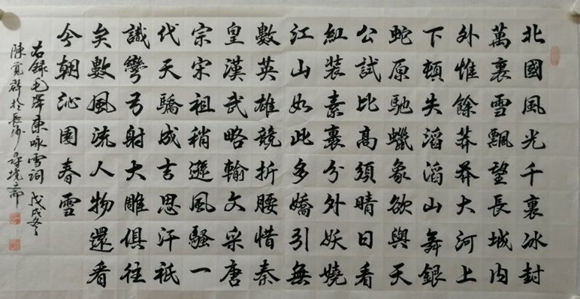 北國風光千裏冰封
萬裏雪飄望長城内
外惟餘莽莽大河上
下頓失滔滔山舞銀
蛇原馳蠟象欲與天
公試比高須晴日看
紅裝素裹分外妖嬈
江山如此多嬌引無
數英雄競折腰惜秦
皇漢武略輸文采唐
宗宋祖稍遜風騷一
代天驕成吉思汗祇
識彎弓射大雕俱往
矣數風流人物還看
今朝沁園春雪
右録毛澤東詠雪詞戊戌冬
陳於長沙